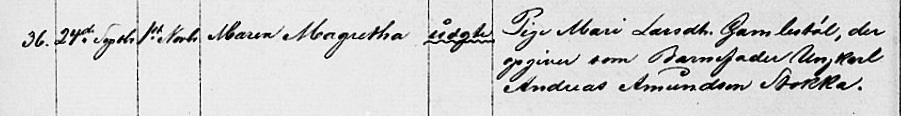 36. 24de Septbr 1ste Novbr Maren Magretha uægte Pige Mari Larsdh. Gamlestøl, der
opgiver som Barnefader Ungkarl
Andreas Amundsen Stokka.